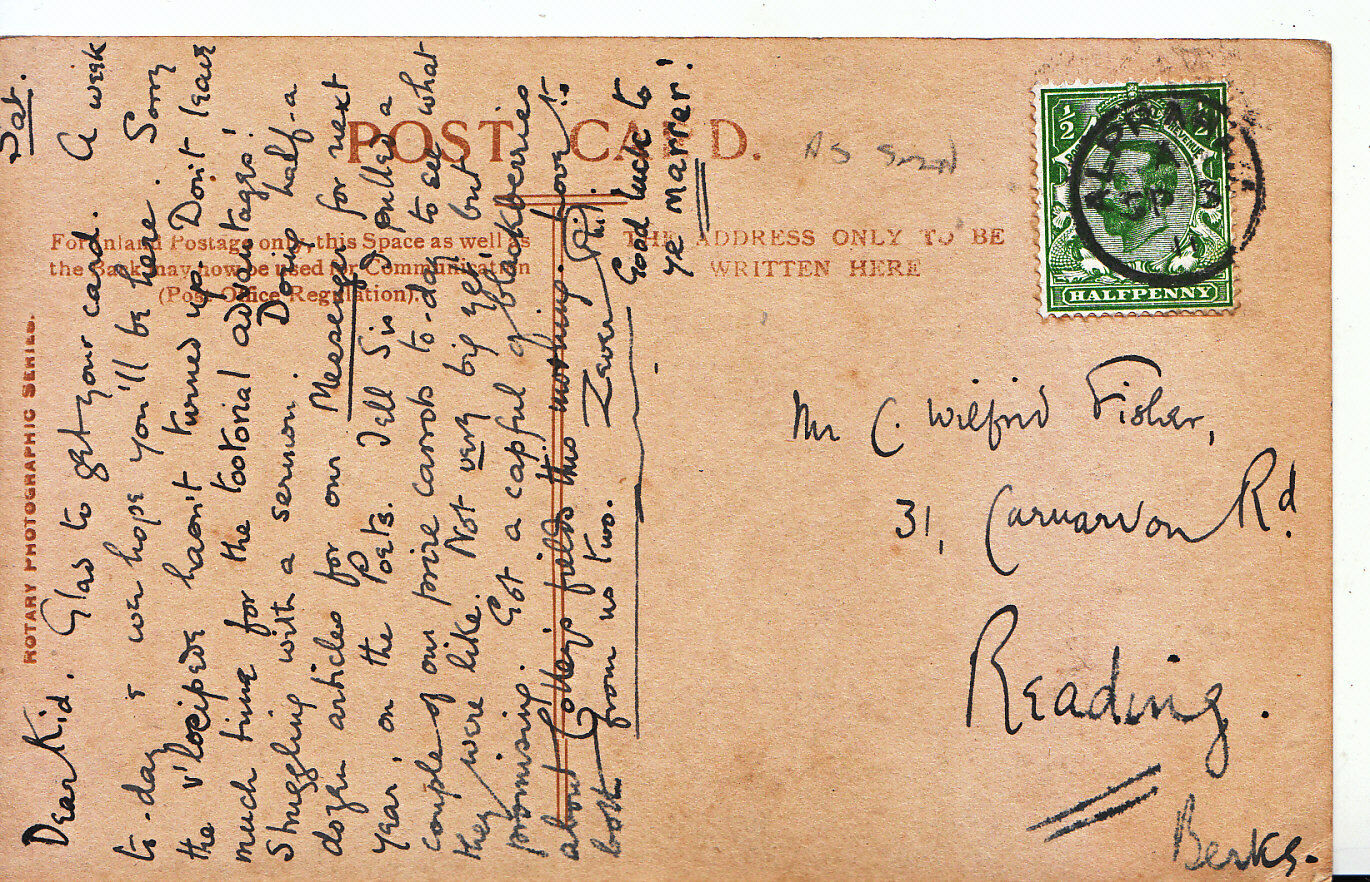 POST CARD.
As Send
For Inland Postage only, this Space as well as
the Back may now be used for Communication
(Post Office Regulation).
THE ADDRESS ONLY TO BE
WRITTEN HERE
ROTARY PHOTOGRAPHIC SERIES.
½ ½
HALFPENNY
SP 3
11
Sat.
Dear Kid. Glad to get your card. A week
to-day & we hope you'll be here. Sorry
the v'locipede hasn't turned up. Don't leave
much time for the tootorial advantages!
Struggling with a sermon. Doing half-a
dozen articles for our Messenger for next
year, on the Poets. Tell Sis I pulled a
couple of our prize carrots to-day to see what
they were like. Not very big yet, but
promising. Got a capful of blackberries
about Colley's fields this morning. Love to
both from us two. Zever, Phil.
Good luck to
ye marrer!
Mr C. Wilfrid Fisher,
31, Carnarvon Rd.
Reading.
Berks.